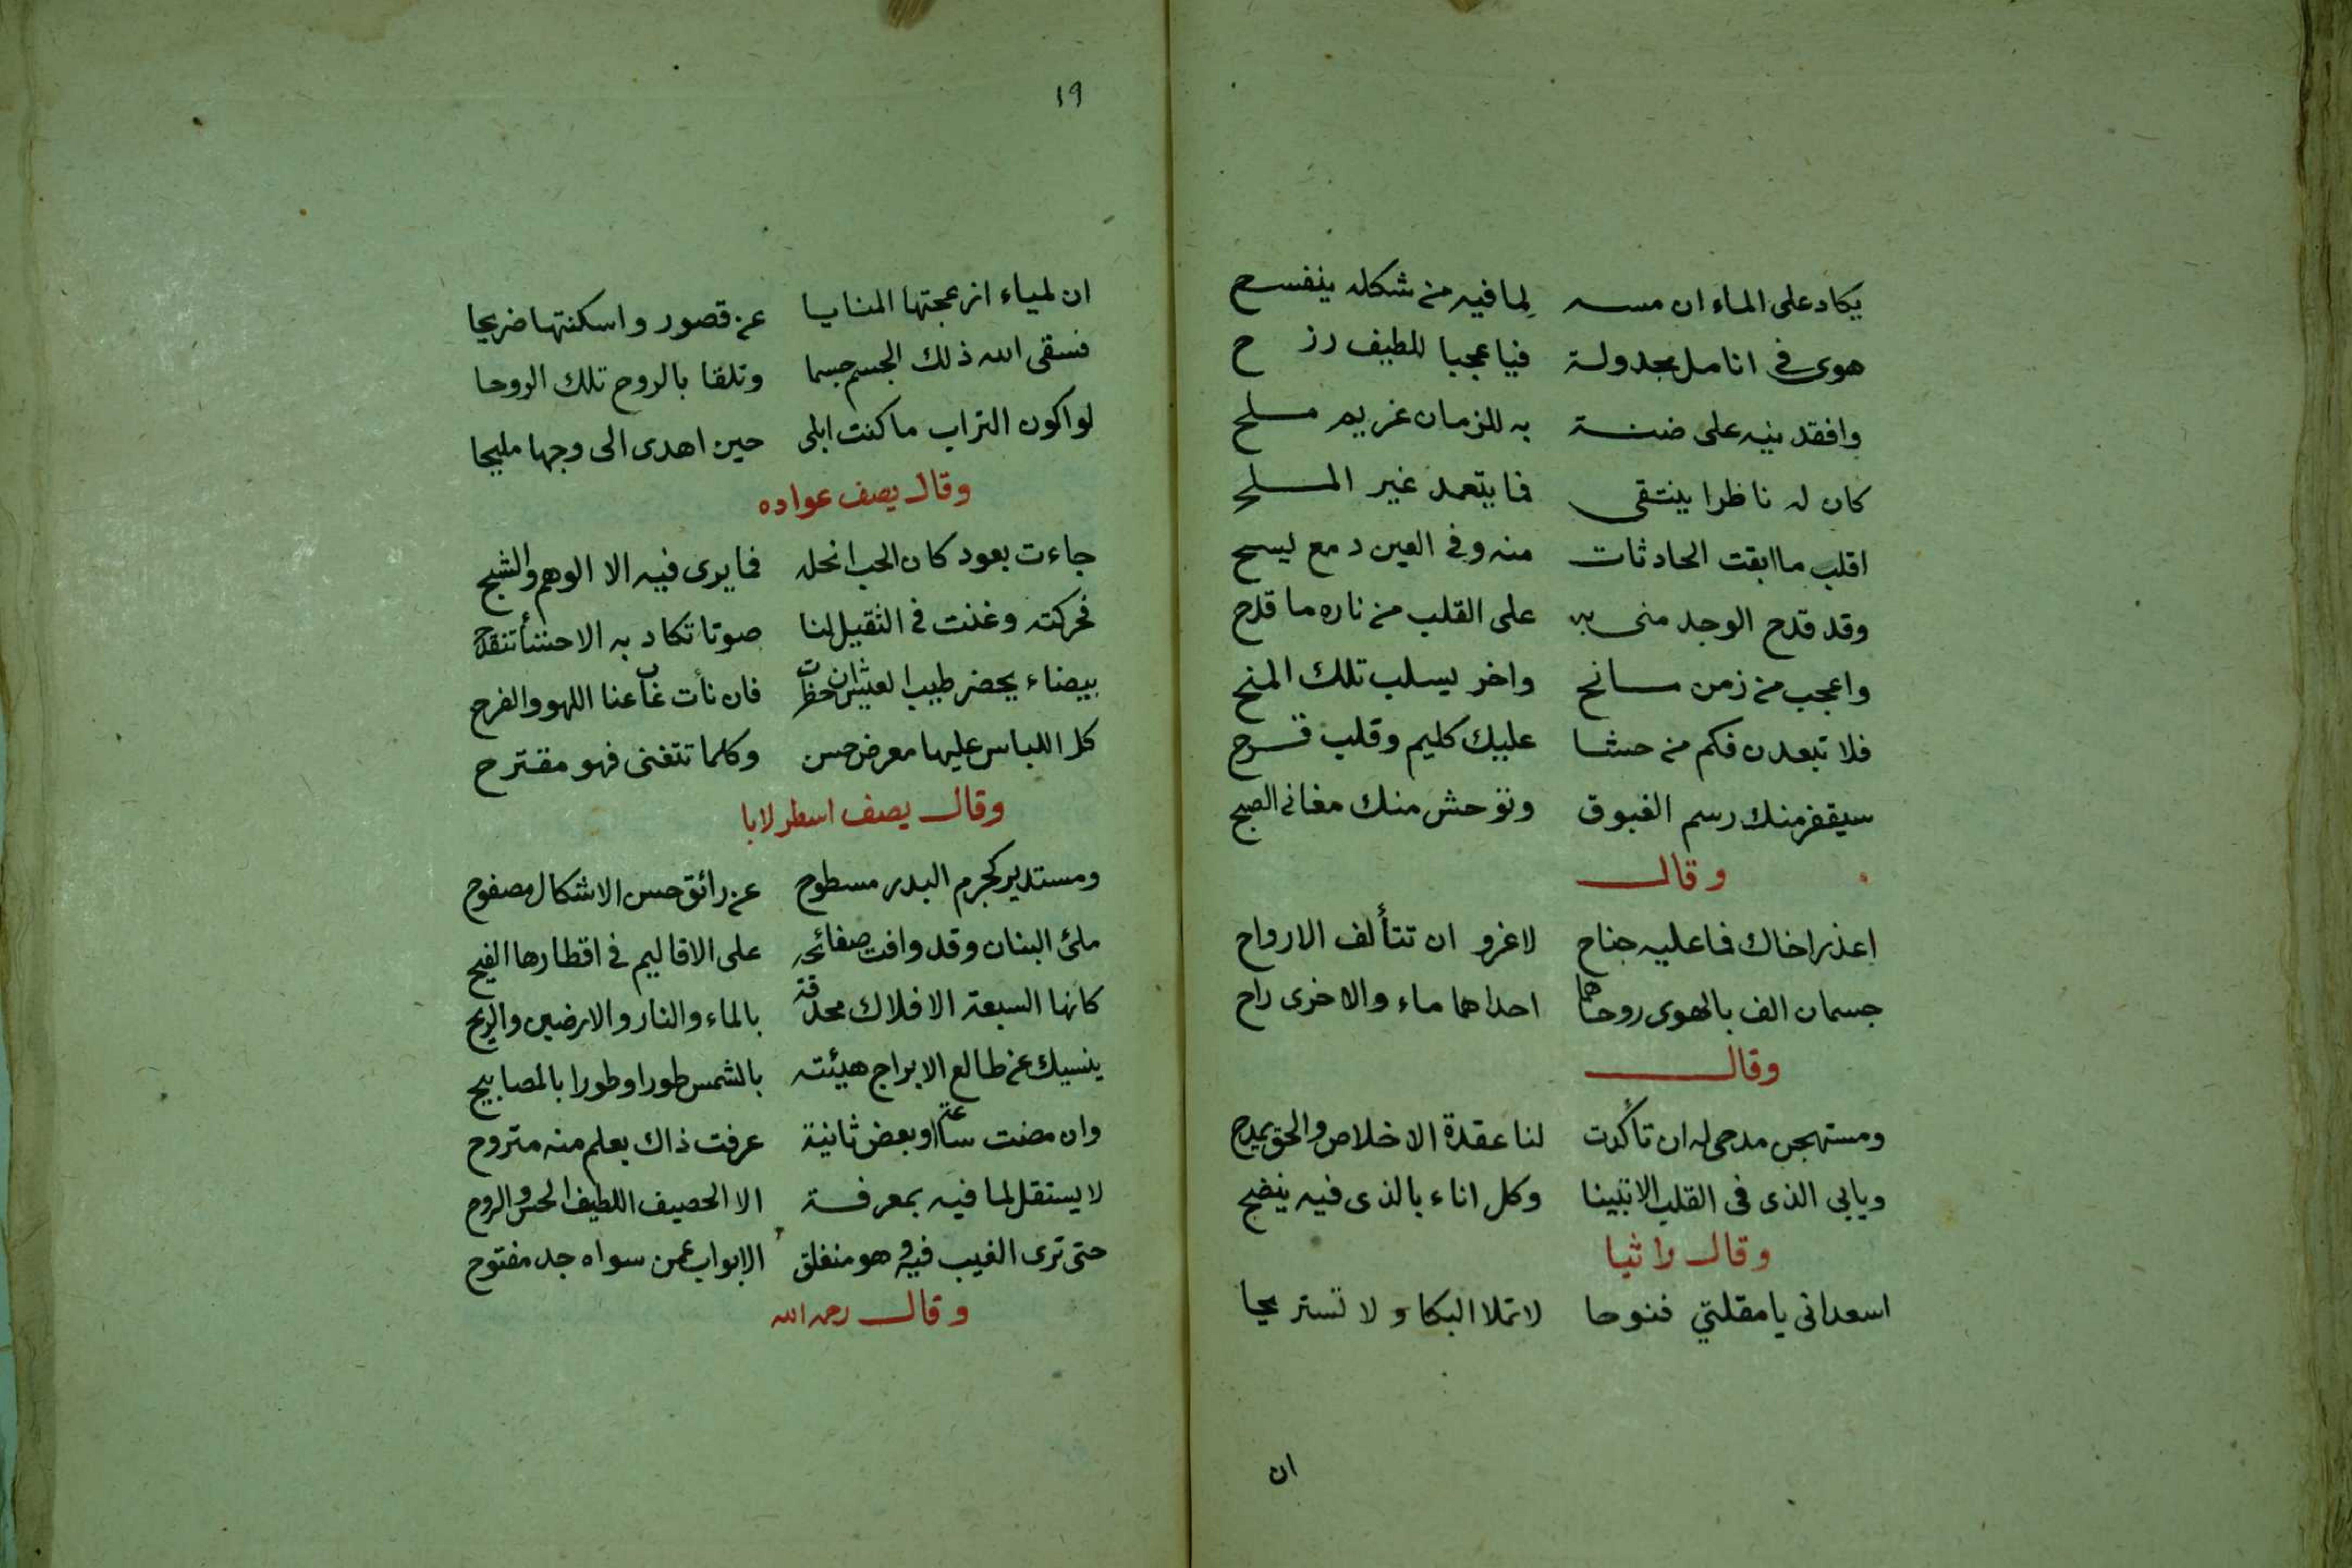 يكاد على الماء ان مسه لما فيه من شكله ينفسح
هوى في انامل مجدولة فيا عجبا للطيف رزح
وافقدنيه على ضنة به للزمان غريم ملح
كان له ناظرا ينتقى فما يتعمد غير الملح
اقلب ما ابقت الحادثات منه وفي العين دمع يسح
وقد قدح الوجد منى به على القلب من ناره ما قدح
واعجب من زمن مانح واخر يسلب تلك المنح
فلا تبعدن فكم من حشا عليك كليم وقلب قرح
سيقفر منك رسم الغبوق وتوحش منك مغاني الصبح
وقال
اعذر اخاك فما عليه جناح لاغرو ان تتألف الارواح
جسمان الف بالهوى روحاهما احداهما ماء والاخرى راح
وقال
ومستهجن مدحى له ان تأكدت لنا عقدة الاخلاص والحق يمدح
ويابى الذى فى القلب الا تبينا وكل اناء بالذى فيه ينضح
وقال راثيا
اسعدانى يا مقلتي فنوحا لا تملا البكا ولا تستريحا
ان
١٩
ان لمياء ازعجتها المنايا عن قصور واسكنتها ضريحا
فسقى الله ذلك الجسم جسما وتلقا بالروح تلك الروحا
لو اكون التراب ما كنت ابلى حين اهدى الى وجها مليحا
وقال يصف عواده
جاءت بعود كان الحب انحله فما يرى فيه الا الوهم والشبح
فحركته وغنت في الثقيل لنا صوتا تكاد به الاحشأ تنقدح
بيضاء يحضر طيب العيش ان حظرت فان نأت غاب عنا اللهو والفرح
كل اللباس عليها معرض حسن وكلما تتغنى فهو مقترح
وقال يصف اسطرلابا
ومستدير كجرم البدر مسطوح عن رائق حسن الاشكال مصفوح
ملئ البنان وقد وافت صفائحه على الاقاليم في اقطارها الفيح
كانها السبعة الافلاك محدقة بالماء والنار والارضين والريح
ينسيك عن طالع الابراج هيئته بالشمس طورا وطورا بالمصابيح
وان مضت ساعة او بعض ثانية عرفت ذاك بعلم منه متروح
لا يستقل لما فيه بمعرفة الا الحصيف اللطيف الحس والروح
حتى ترى الغيب فيه وهو منغلق الابواب عمن سواه جد مفتوح
وقال رحمه الله